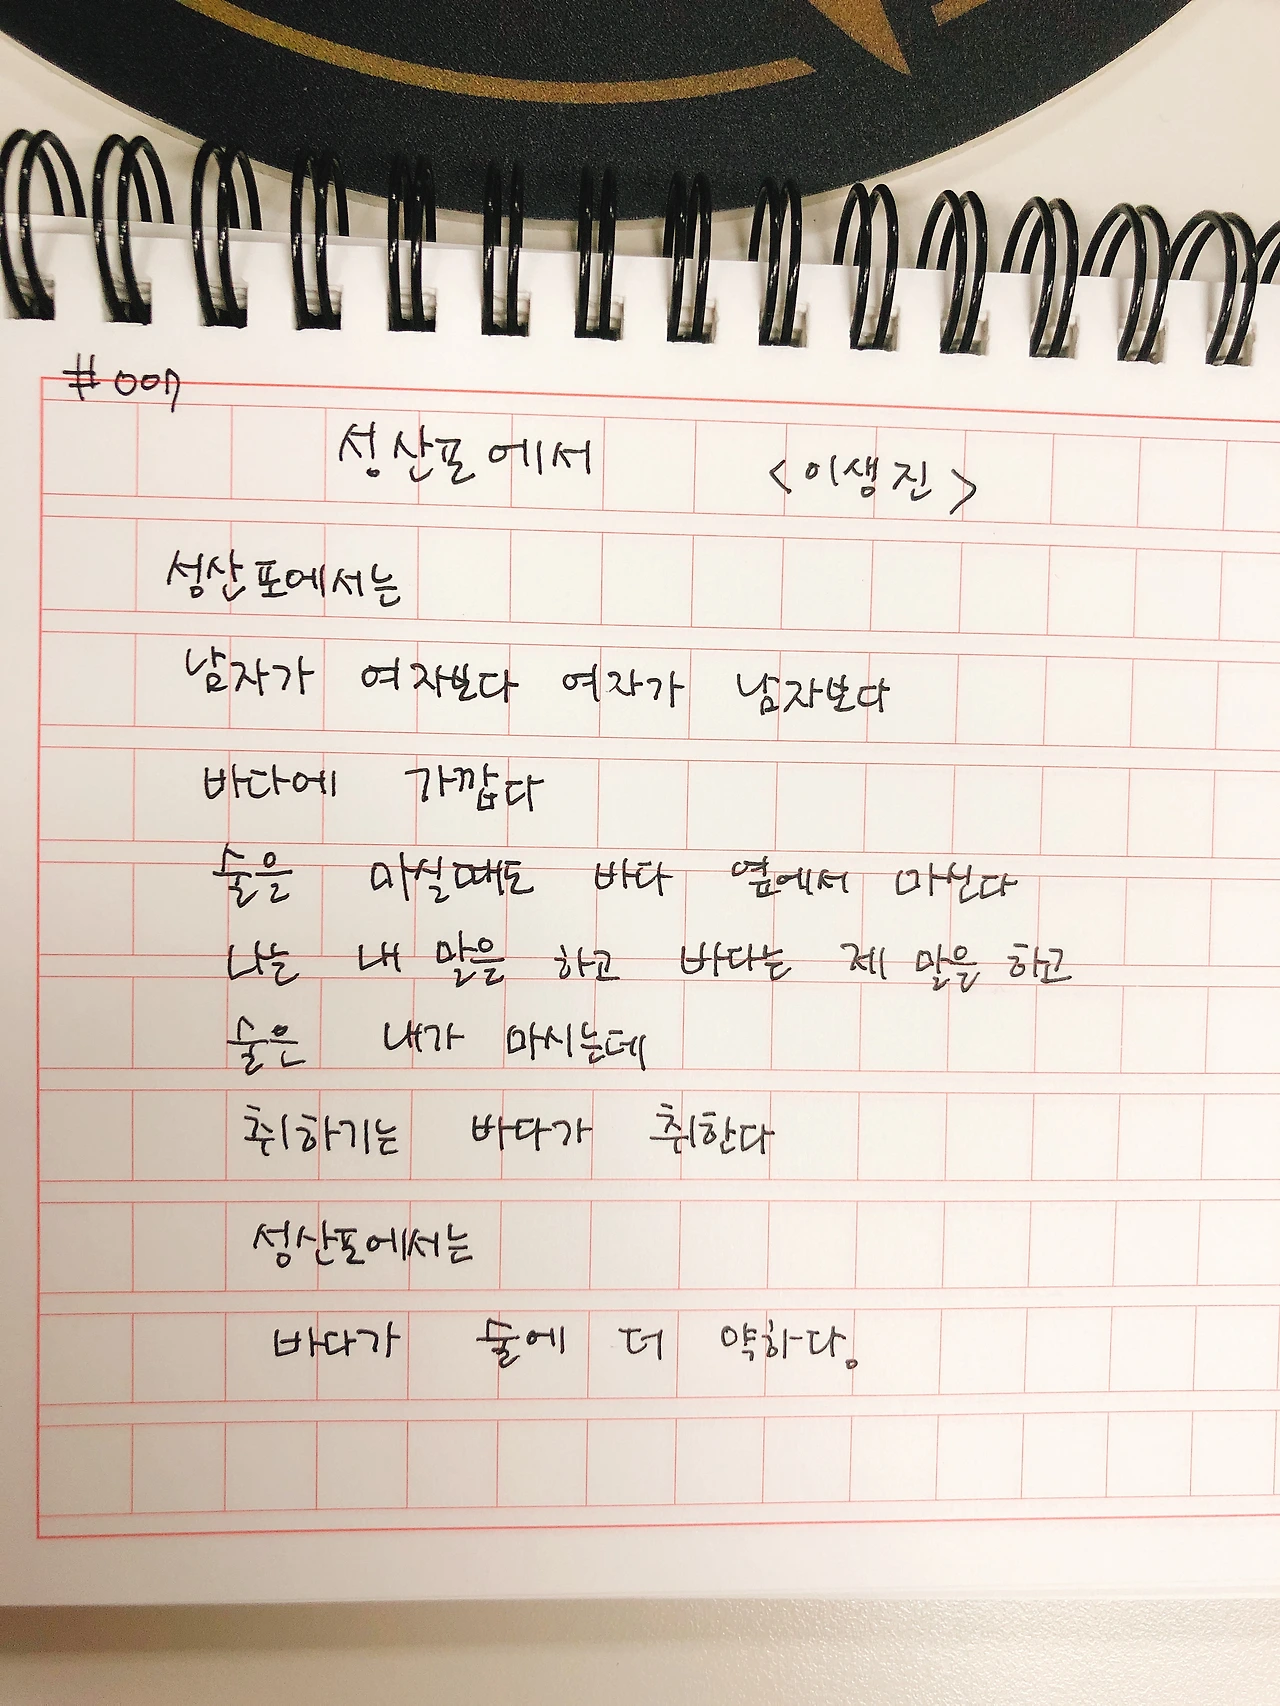 #007
성산포에서 <이생진>
성산포에서는
남자가 여자보다 여자가 남자보다
바다에 가깝다
술을 마실때도 바다 옆에서 마신다
나는 내 말을 하고 바다는 제 말을 하고
술은 내가 마시는데
취하기는 바다가 취한다
성산포에서는
바다가 술에 더 약하다.